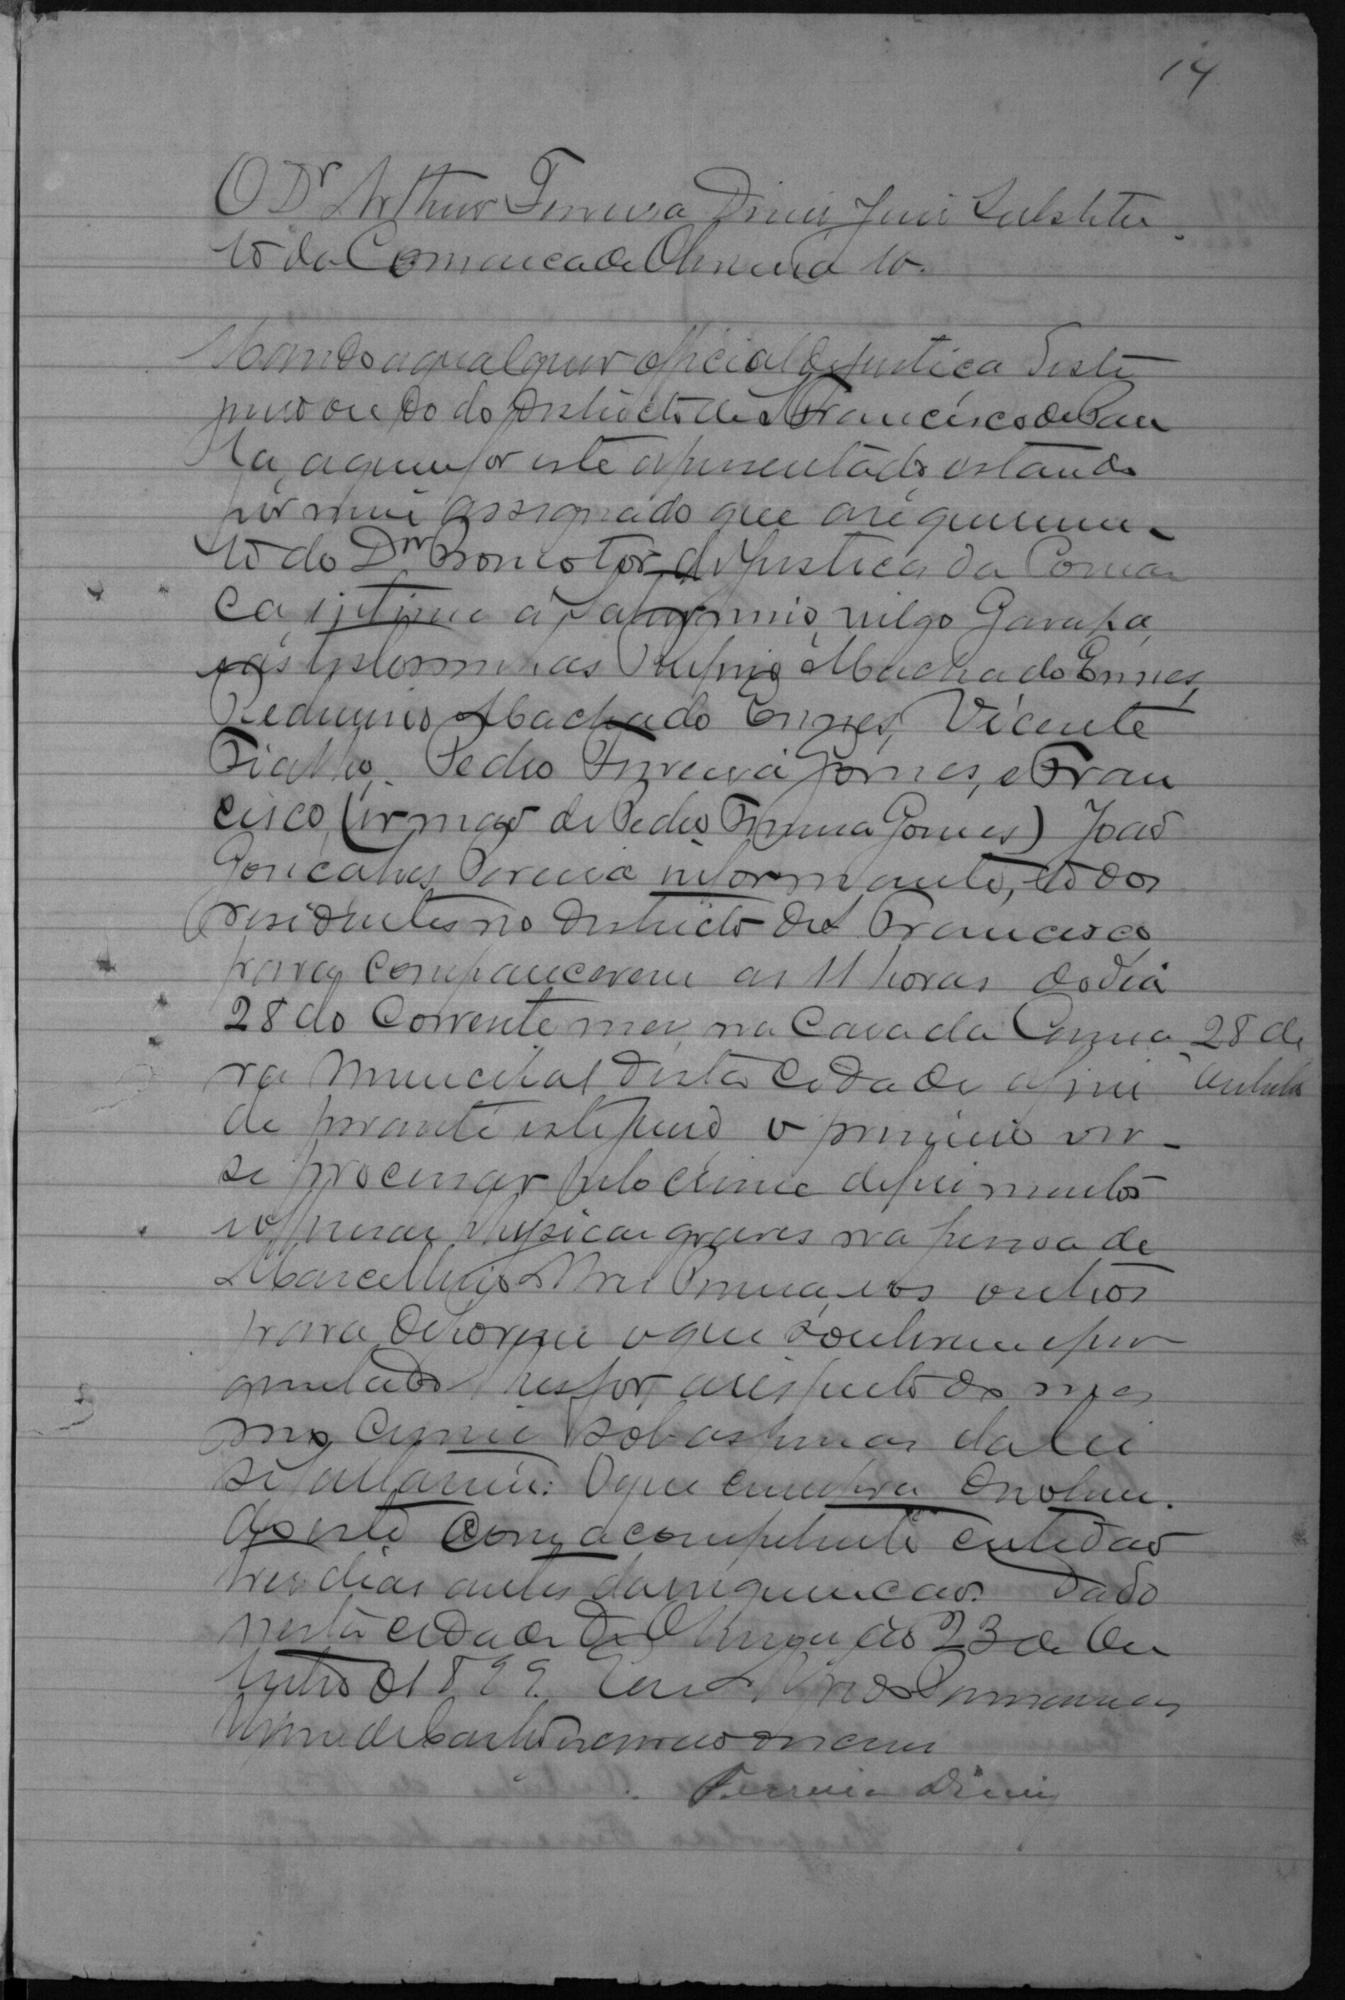 14
O Dr Arthur Ferreira Diniz Juiz Substitu
to da Comarca de Oliveira
Mando a qualquer official de justiça deste
juizo ou do do districto de S Francisco de Pau
la, a quem for este apresentado, estando
por mim assignado que a requerimen-
to do Dr Promotor de Justiça da Comar
ca, intime a vulgo Garapa,
e as testemunhas Machado Ennes,
Machado Ennes, Vicente
Fialho, Pedro Ferreira Gomes, e Fran
cisco, (irmão de Pedro Ferreira Gomes) João
Gonçalves Pereira informante, todos
residentes no districto de S Francisco
para comparecerem as 11 horas do dia
28 do corrente mez, na Casa da Cama
28 de
ra Municipal desta cidade afim
outubro
de perante este juizo o primeiro ver-
se processar pelo crime de ferimentos
offensas physicas graves na pessoa de
Marcellino Pereira, e os outros
para deporem o que souberem e per
guntado lhes for a respeito do mes
mo crime sob as penas da lei
se faltarem. O que cumpra devolven
do este com a competente certidão
tres dias antes da Dado
nesta cidade de Oliveira aos 23 de Ou
tubro de 1899. Eu
de Castro escrivão o escrevi
Ferreira Diniz